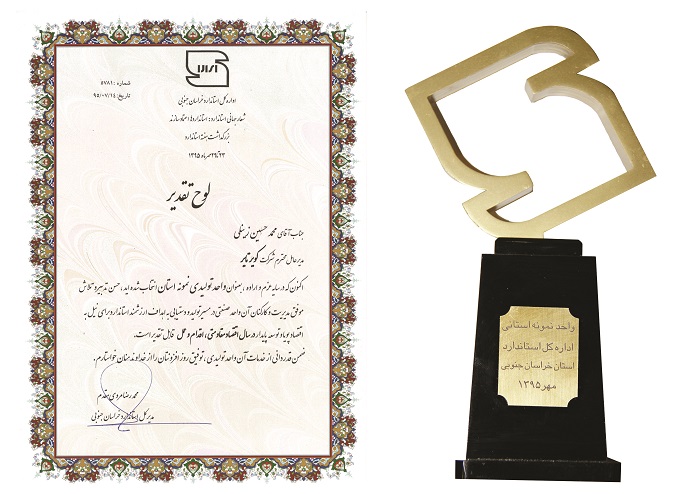 شماره : ۵۷۸۱
تاریخ: ۹۵/۰۷/۲۴
اداره کل استاندارد خراسان جنوبی
شعار جهانی استاندارد: استانداردها اعتمادسازند
بزرگداشت هفته استاندارد
۲۳ تا ۲۹ مهرماه ۱۳۹۵
لوح تقدیر
جناب آقای محمد حسین زینلی
مدیرعامل محترم شرکت کویر تایر
اکنون که در سایه عزم و اراده ، بعنوان واحد تولیدی نمونه استان انتخاب شده اید، حسن تدبیر و تلاش
موفق مدیریت و کارکنان آن واحد صنعتی در مسیر تولید و دستیابی به اهداف ارزشمند استاندارد برای نیل به
اقتصاد پویا و توسعه پایدار در سال اقتصاد مقاومتی، اقدام و عمل قابل تقدیر است.
ضمن قدردانی از خدمات آن واحد تولیدی، توفیق روز افزونتان را از خداوند منان خواستارم.
محمد رضا مرودی مقدم
مدیر کل استاندارد خراسان جنوبی
واحد نمونه استانی
اداره کل استاندارد
استان خراسان جنوبی
مهر ۱۳۹۵